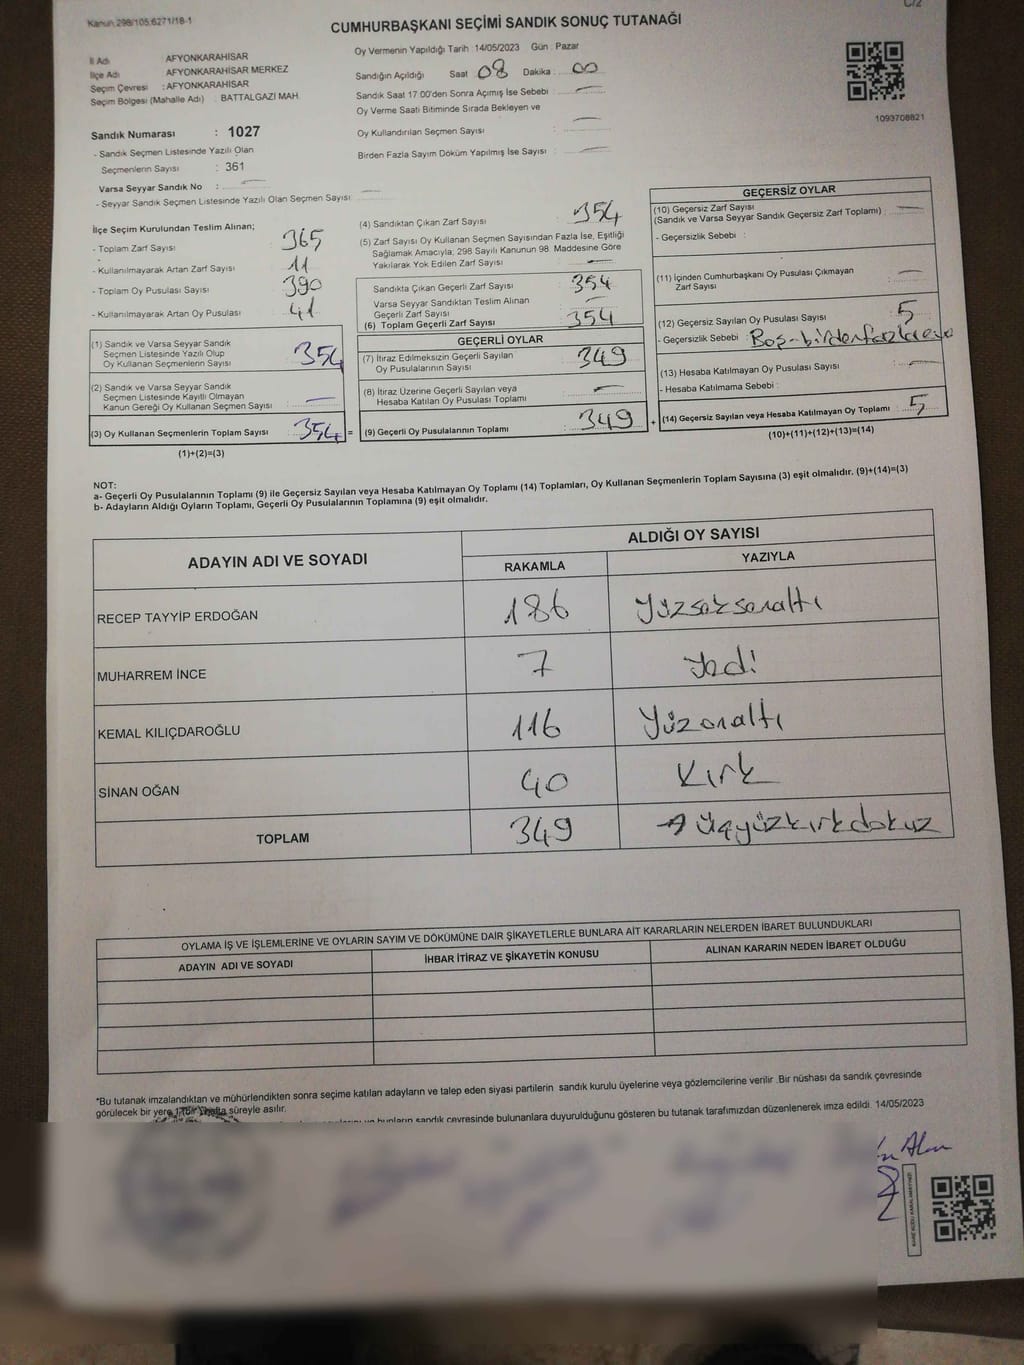 Kanun 298/105.6271/18-1
C/2
CUMHURBAŞKANI SEÇİMİ SANDIK SONUÇ TUTANAĞI
İl Adı AFYONKARAHİSAR
İlçe Adı AFYONKARAHİSAR MERKEZ
Seçim Çevresi : AFYONKARAHİSAR
Seçim Bölgesi (Mahalle Adı) : BATTALGAZİ MAH.
Oy Vermenin Yapıldığı Tarih :14/05/2023 Gün : Pazar
Sandığın Açıldığı Saat 08 Dakika : 00
Sandık Saat 17:00'den Sonra Açımış İse Sebebi :
Oy Verme Saati Bitiminde Sırada Bekleyen ve
Oy Kullandırılan Seçmen Sayısı :
Birden Fazla Sayım Döküm Yapılmış İse Sayısı :
1093708821
Sandık Numarası : 1027
- Sandık Seçmen Listesinde Yazılı Olan
Seçmenlerin Sayısı : 361
Varsa Seyyar Sandık No :
- Seyyar Sandık Seçmen Listesinde Yazılı Olan Seçmen Sayısı :
İlçe Seçim Kurulundan Teslim Alınan;
- Toplam Zarf Sayısı 365
- Kullanılmayarak Artan Zarf Sayısı 11
- Toplam Oy Pusulası Sayısı 390
- Kullanılmayarak Artan Oy Pusulası 41
(1) Sandık ve Varsa Seyyar Sandık
Seçmen Listesinde Yazılı Olup
Oy Kullanan Seçmenlerin Sayısı 354
(2) Sandık ve Varsa Seyyar Sandık
Seçmen Listesinde Kayıtlı Olmayan
Kanun Gereği Oy Kullanan Seçmen Sayısı
(3) Oy Kullanan Seçmenlerin Toplam Sayısı 354 =
(1)+(2)=(3)
(4) Sandıktan Çıkan Zarf Sayısı 354
(5) Zarf Sayısı Oy Kullanan Seçmen Sayısından Fazla İse, Eşitliği
Sağlamak Amacıyla; 298 Sayılı Kanunun 98. Maddesine Göre
Yakılarak Yok Edilen Zarf Sayısı
Sandıkta Çıkan Geçerli Zarf Sayısı 354
Varsa Seyyar Sandıktan Teslim Alınan
Geçerli Zarf Sayısı
(6) Toplam Geçerli Zarf Sayısı 354
GEÇERLİ OYLAR
(7) İtiraz Edilmeksizin Geçerli Sayılan
Oy Pusulalarının Sayısı 349
(8) İtiraz Üzerine Geçerli Sayılan veya
Hesaba Katılan Oy Pusulası Toplamı
(9) Geçerli Oy Pusulalarının Toplamı 349 +
GEÇERSİZ OYLAR
(10) Geçersiz Zarf Sayısı
(Sandık ve Varsa Seyyar Sandık Geçersiz Zarf Toplamı) :
- Geçersizlik Sebebi :
(11) İçinden Cumhurbaşkanı Oy Pusulası Çıkmayan
Zarf Sayısı
(12) Geçersiz Sayılan Oy Pusulası Sayısı 5
- Geçersizlik Sebebi : Boş-birden fazlaya
(13) Hesaba Katılmayan Oy Pusulası Sayısı
- Hesaba Katılmama Sebebi :
(14) Geçersiz Sayılan veya Hesaba Katılmayan Oy Toplamı 5
(10)+(11)+(12)+(13)=(14)
NOT:
a- Geçerli Oy Pusulalarının Toplamı (9) ile Geçersiz Sayılan veya Hesaba Katılmayan Oy Toplamı (14) Toplamları, Oy Kullanan Seçmenlerin Toplam Sayısına (3) eşit olmalıdır. (9)+(14)=(3)
b- Adayların Aldığı Oyların Toplamı, Geçerli Oy Pusulalarının Toplamına (9) eşit olmalıdır.
ADAYIN ADI VE SOYADI
ALDIĞI OY SAYISI
RAKAMLA YAZIYLA
RECEP TAYYİP ERDOĞAN 186 Yüzseksenaltı
MUHARREM İNCE 7 Yedi
KEMAL KILIÇDAROĞLU 116 Yüzonaltı
SİNAN OĞAN 40 Kırk
TOPLAM 349 üçyüzkırkdokuz
OYLAMA İŞ VE İŞLEMLERİNE VE OYLARIN SAYIM VE DÖKÜMÜNE DAİR ŞİKAYETLERLE BUNLARA AİT KARARLARIN NELERDEN İBARET BULUNDUKLARI
ADAYIN ADI VE SOYADI İHBAR İTİRAZ VE ŞİKAYETİN KONUSU ALINAN KARARIN NEDEN İBARET OLDUĞU
*Bu tutanak imzalandıktan ve mühürlendikten sonra seçime katılan adayların ve talep eden siyasi partilerin sandık kurulu üyelerine veya gözlemcilerine verilir .Bir nüshası da sandık çevresinde
görülecek bir yere 1 bir hafta süreyle asılır.
bunların sandık çevresinde bulunanlara duyurulduğunu gösteren bu tutanak tarafımızdan düzenlenerek imza edildi. 14/05/2023